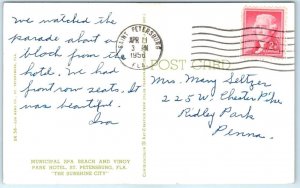 we watched the
parade about a
block from the
hotel, we had
front row seats, it
was beautiful.
Ira
SAINT PETERSBURG
APR
3 PM
1956
FLA.
POST CARD
Mrs. Mary Seltzer
225 W. Chester Pike
Ridley Park
Penna.
MUNICIPAL SPA BEACH AND VINOY
PARK HOTEL, ST. PETERSBURG, FLA.
"THE SUNSHINE CITY"